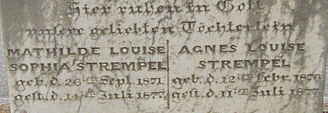 Hier ruhen in Gott
unsere geliebten Töchterlein
MATHILDE LOUISE
SOPHIA STREMPEL
geb. d. 26ten Sept. 1871
gest. d. 11ten Juli 1877.
AGNES LOUISE
STREMPEL
geb. d. 12ten Febr. 1876
gest. d. 11ten Juli 1877